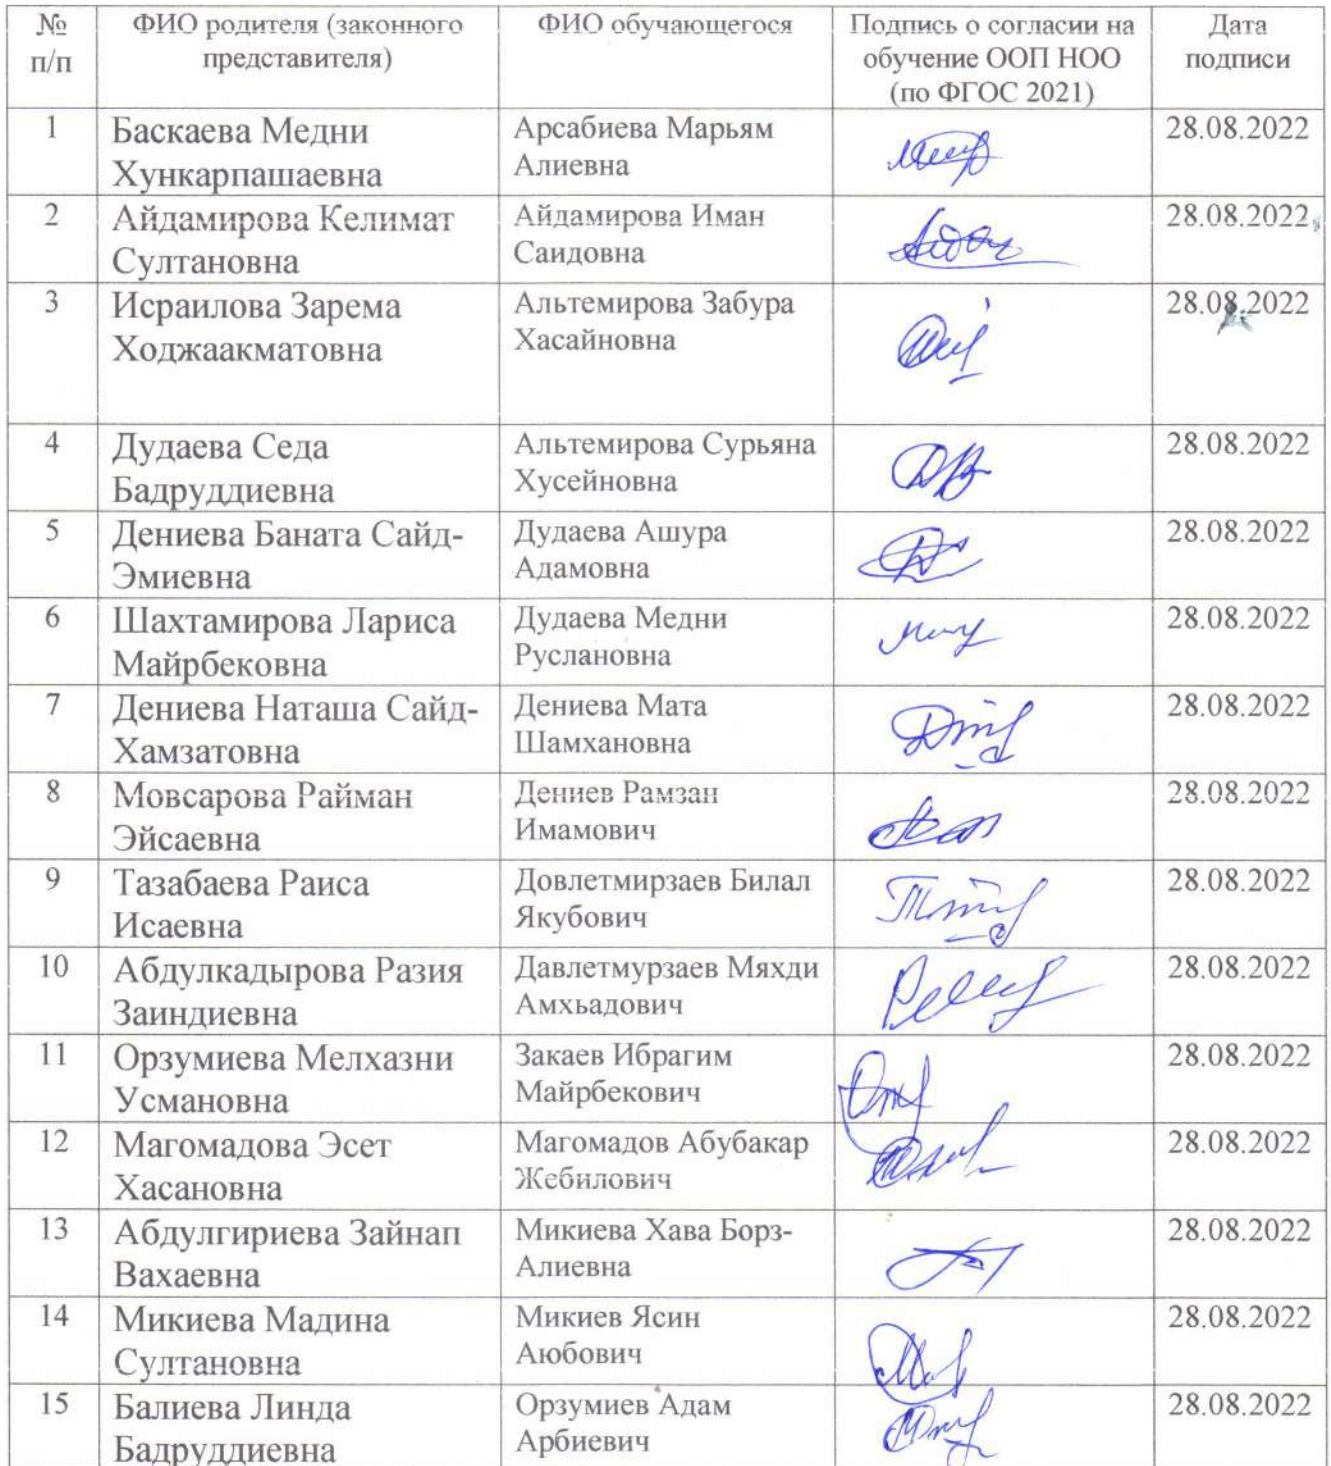 № п/п
ФИО родителя (законного представителя)
ФИО обучающегося
Подпись о согласии на обучение ООП НОО (по ФГОС 2021)
Дата подписи
1
Баскаева Медни
Хункарпашаевна
Арсабиева Марьям
Алиевна
28.08.2022
2
Айдамирова Келимат
Султановна
Айдамирова Иман
Саидовна
28.08.2022
3
Исраилова Зарема
Ходжаакматовна
Альтемирова Забура
Хасайновна
28.08.2022
4
Дудаева Седа
Бадруддиевна
Альтемирова Сурьяна
Хусейновна
28.08.2022
5
Дениева Баната Сайд-
Эмиевна
Дудаева Ашура
Адамовна
28.08.2022
6
Шахтамирова Лариса
Майрбековна
Дудаева Медни
Руслановна
28.08.2022
7
Дениева Наташа Сайд-
Хамзатовна
Дениева Мата
Шамхановна
28.08.2022
8
Мовсарова Райман
Эйсаевна
Дениев Рамзан
Имамович
28.08.2022
9
Тазабаева Раиса
Исаевна
Довлетмирзаев Билал
Якубович
28.08.2022
10
Абдулкадырова Разия
Заиндиевна
Давлетмурзаев Мяхди
Амхьадович
28.08.2022
11
Орзумиева Мелхазни
Усмановна
Закаев Ибрагим
Майрбекович
28.08.2022
12
Магомадова Эсет
Хасановна
Магомадов Абубакар
Жебилович
28.08.2022
13
Абдулгириева Зайнап
Вахаевна
Микиева Хава Борз-
Алиевна
28.08.2022
14
Микиева Мадина
Султановна
Микиев Ясин
Аюбович
28.08.2022
15
Балиева Линда
Бадруддиевна
Орзумиев Адам
Арбиевич
28.08.2022